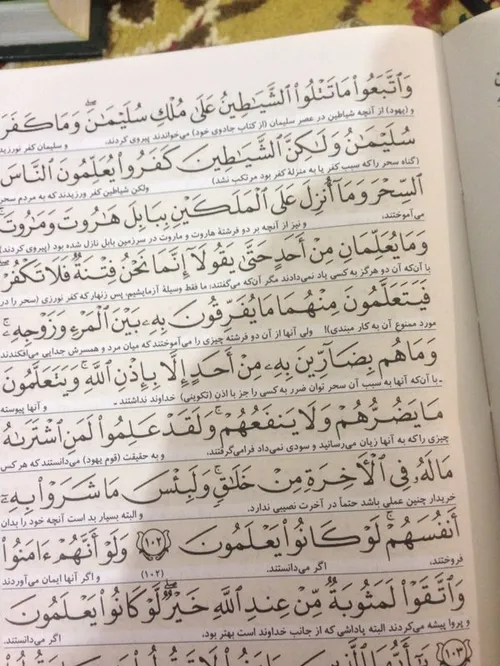 وَٱتَّبَعُوا۟ مَا تَتْلُوا۟ ٱلشَّيَـٰطِينُ عَلَىٰ مُلْكِ سُلَيْمَـٰنَ ۖ وَمَا كَفَرَ
و (یهود) از آنچه شیاطین در عصر سلیمان (از کتاب جادوی خود) می‌خواندند پیروی کردند. و سلیمان کفر نورزید
سُلَيْمَـٰنُ وَلَـٰكِنَّ ٱلشَّيَـٰطِينَ كَفَرُوا۟ يُعَلِّمُونَ ٱلنَّاسَ
(گناه سحر را که سبب کفر یا به منزلهٔ کفر بود مرتکب نشد) ولکن شیاطین کفر ورزیدند که به مردم سحر
ٱلسِّحْرَ وَمَآ أُنزِلَ عَلَى ٱلْمَلَكَيْنِ بِبَابِلَ هَـٰرُوتَ وَمَـٰرُوتَ ۚ
می‌آموختند، و نیز از آنچه بر دو فرشتهٔ هاروت و ماروت در سرزمین بابل نازل شده بود (پیروی کردند)
وَمَا يُعَلِّمَانِ مِنْ أَحَدٍ حَتَّىٰ يَقُولَآ إِنَّمَا نَحْنُ فِتْنَةٌ فَلَا تَكْفُرْ ۖ
با آن‌که آن دو هرگز به کسی یاد نمی‌دادند مگر آن‌که می‌گفتند: ما فقط وسیلهٔ آزمایشیم؛ پس زنهار که کفر نورزی (سحر را در
فَيَتَعَلَّمُونَ مِنْهُمَا مَا يُفَرِّقُونَ بِهِۦ بَيْنَ ٱلْمَرْءِ وَزَوْجِهِۦ ۚ
مورد ممنوع آن به کار مبندی)! ولی آنها از آن دو فرشته چیزی را می‌آموختند که میان مرد و همسرش جدایی می‌افکندند
وَمَا هُم بِضَآرِّينَ بِهِۦ مِنْ أَحَدٍ إِلَّا بِإِذْنِ ٱللَّهِ ۚ وَيَتَعَلَّمُونَ
ـ با آن‌که آنها به سبب آن سحر توان ضرر به کسی را جز با اذن (تکوینی) خداوند نداشتند ـ و آنها پیوسته
مَا يَضُرُّهُمْ وَلَا يَنفَعُهُمْ ۚ وَلَقَدْ عَلِمُوا۟ لَمَنِ ٱشْتَرَىٰهُ
چیزی را که به آنها زیان می‌رسانید و سودی نمی‌داد فرامی‌گرفتند، و به حقیقت (قوم یهود) می‌دانستند که هر کس
مَا لَهُۥ فِى ٱلْـَٔاخِرَةِ مِنْ خَلَـٰقٍ ۚ وَلَبِئْسَ مَا شَرَوْا۟ بِهِۦٓ
خریدار چنین عملی باشد حتماً در آخرت نصیبی ندارد. و البته بسیار بد است آنچه خود را بدان
أَنفُسَهُمْ ۚ لَوْ كَانُوا۟ يَعْلَمُونَ ﴿١٠٢﴾ وَلَوْ أَنَّهُمْ ءَامَنُوا۟
فروختند، اگر می‌دانستند. (۱۰۲) و اگر آنها ایمان می‌آوردند
وَٱتَّقَوْا۟ لَمَثُوبَةٌ مِّنْ عِندِ ٱللَّهِ خَيْرٌ ۖ لَّوْ كَانُوا۟ يَعْلَمُونَ
و پروا پیشه می‌کردند البته پاداشی که از جانب خداوند است بهتر بود، اگر می‌دانستند.
﴿١٠٣﴾